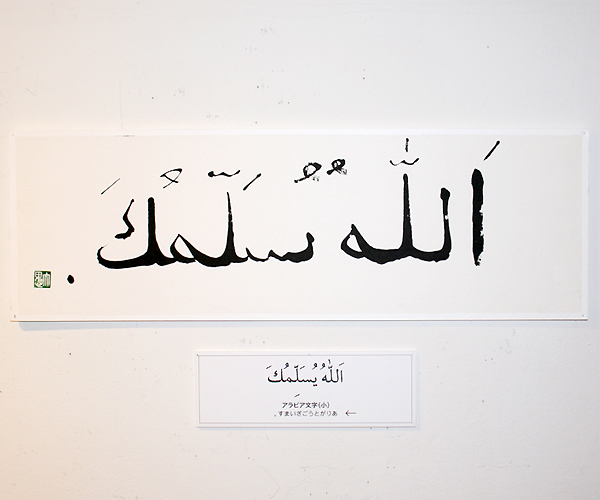 اَللّٰهُ يُسَلِّمُكَ.
اَللّٰهُ يُسَلِّمُكَ
アラビア文字(小)
．すまいざごうとがりあ ←